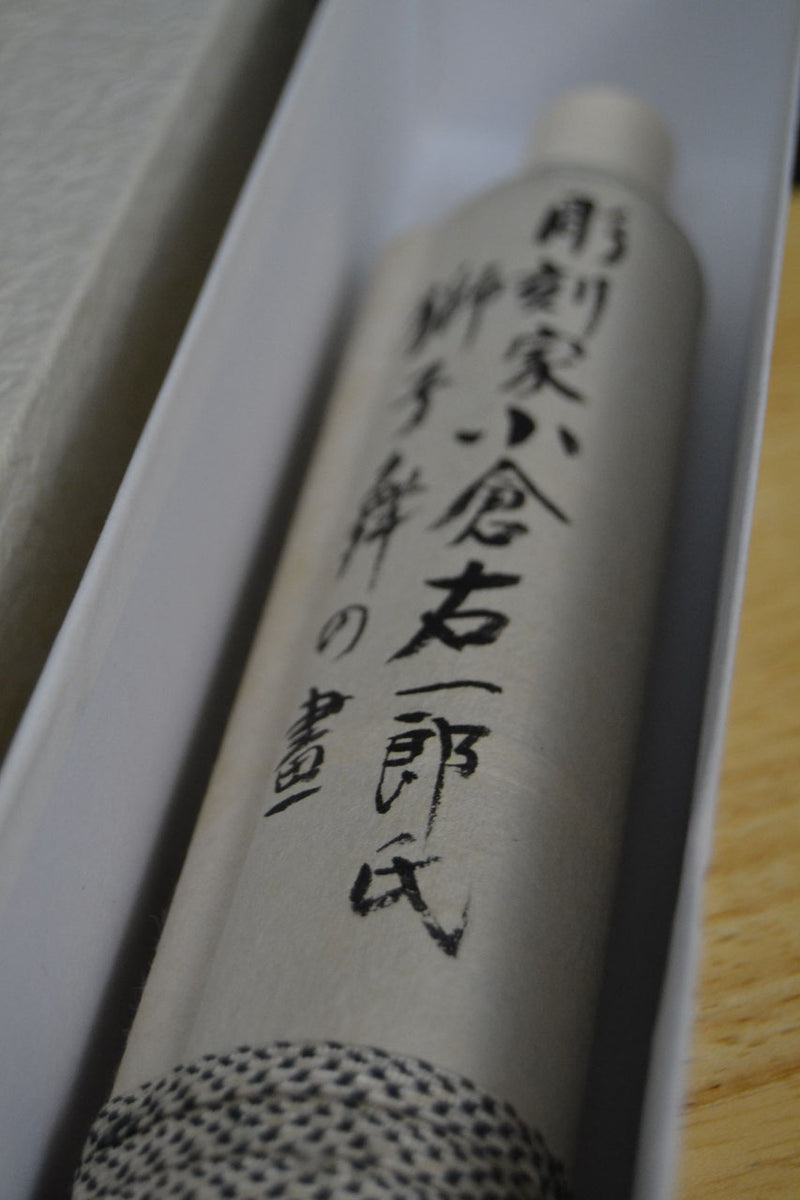 彫刻家小倉右一郎氏
獅子舞の畫